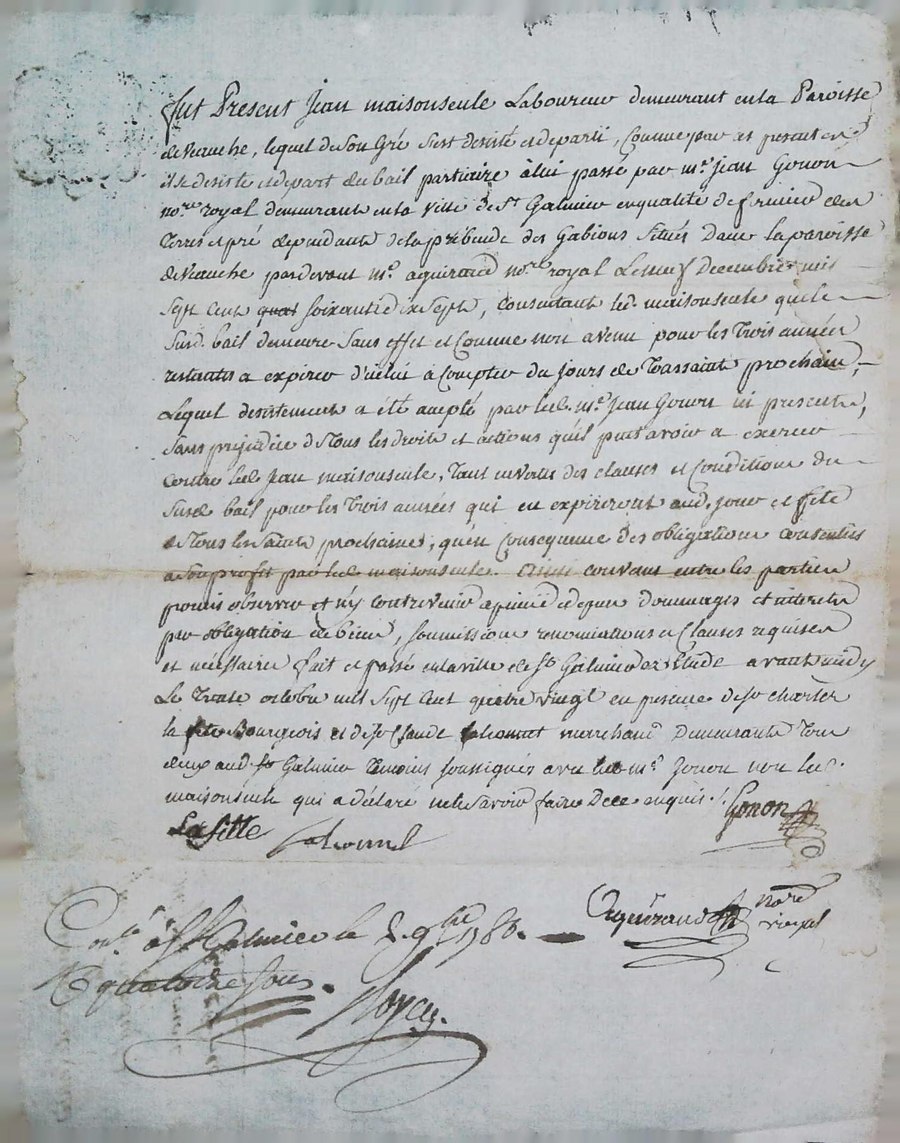 fut Present Jean maisonseule Laboureur demeurant en la Paroisse
de Veauche, lequel de Son Gré s'est desisté et departi, Comme par ces presentes
il se desiste et depart du bail partiaire à lui passé par m.e Jean Gonon
no.re royal demeurant en la ville de S.t Galmier en qualité de fermier des
terres et pré dependants de la prébende des Gabions Situés Dans la paroisse
de Veauche pardevant m.e aguiraud no.re royal Le neuf Decembre mil
Sept Cent soixante dix Sept, Consentant led. maisonseule que le
Susd. bail demeure Sans effet et Comme non avenu pour les Trois années
restantes a expirer d'icelui à Compter du jours de Toussaint prochain,
Lequel desistement a été accepté par led. m.e Jean Gonon ici present,
Sans prejudice de Tous les droits et actions qu'il peut avoir a exercer
Contre led. Jean maisonseule, Tant en vertu des clauses et Conditions du
Susd. bail pour les Trois années qui en expireront aud. jour et fête
de Tous les Saints prochaine, qu'en Consequence des obligations consenties
a Son profit par led. maisonseule. Ainsi convenu entre les parties
promis observer et n'y contrevenir a peine de depens Dommages et interets
par obligation de biens, soumissions renonciations et Clauses requises
et nécessaire fait et passé en la ville de S.t Galmier ez Etude avant midy
Le Trente octobre mil Sept Cent quatre vingt en presence de S.r Charles
la fite Bourgeois et de S.r Claude marchand Demeurants Tous
deux aud. S.t Galmier Temoins soussignés avec led. m.e Gonon non led.
maisonseule qui a déclaré ne le Savoir faire De ce enquis ./.
La fitte Gonon
Aguiraud no.re royal
Con.lé à S.t Galmier le 8. 9.bre 1780.
R quatorze sous.